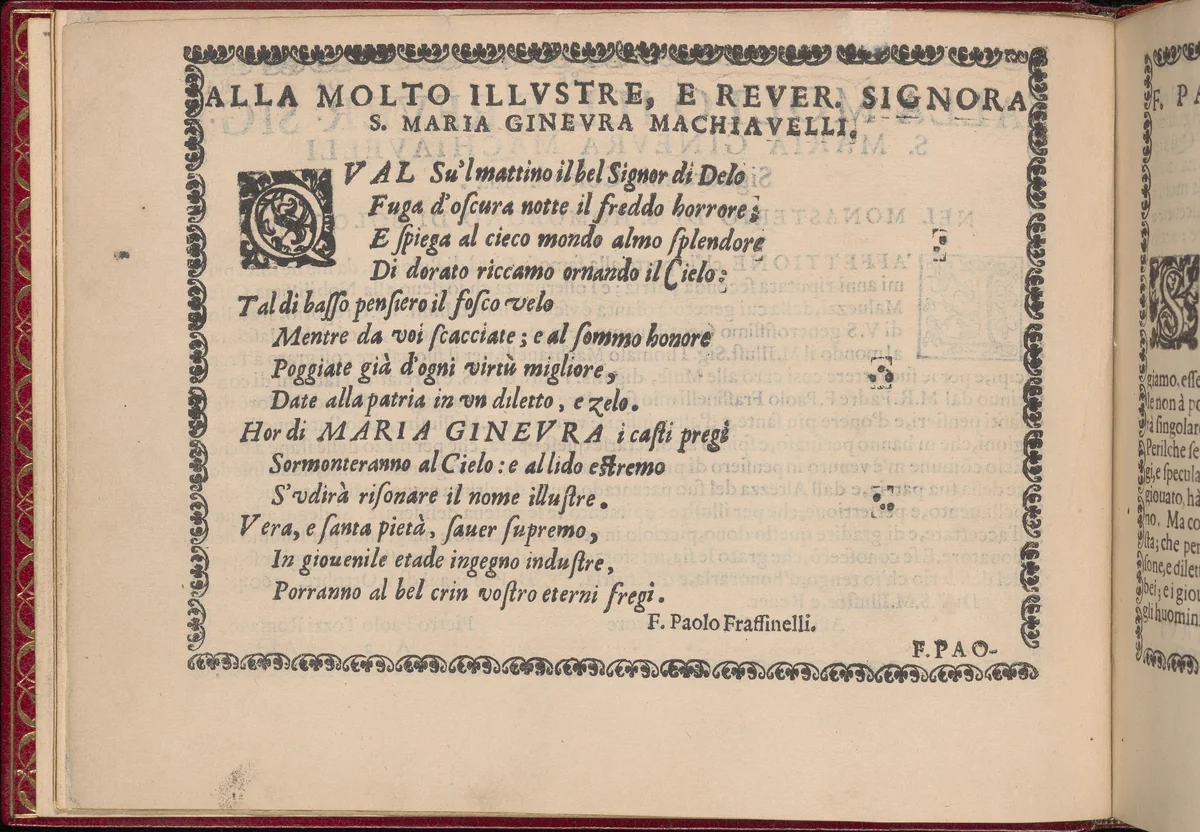 ALLA MOLTO ILLVSTRE, E REVER. SIGNORA
S. MARIA GINEVRA MACHIAVELLI.
QVAL Su'l mattino il bel Signor di Delo
Fuga d'oſcura notte il freddo horrore;
E ſpiega al cieco mondo almo ſplendore
Di dorato riccamo ornando il Cielo;
Tal di baſſo penſiero il foſco velo
Mentre da voi ſcacciate; e al ſommo honore
Poggiate già d'ogni virtù migliore,
Date alla patria in vn diletto, e zelo.
Hor di MARIA GINEVRA i caſti pregi
Sormonteranno al Cielo: e al lido eſtremo
S'vdirà riſonare il nome illuſtre.
Vera, e ſanta pietà, ſauer ſupremo,
In giouenile etade ingegno induſtre,
Porranno al bel crin voſtro eterni fregi.
F. Paolo Fraſſinelli.
F. PAO-
F. PA
giamo, eſſe
le non à po
rà ſingolare
Perilche ſe
gi, e ſpecula
giouato, hà
no. Ma co
ſta; che per
ſione, e dilett
bei; e i giou
gli huomin